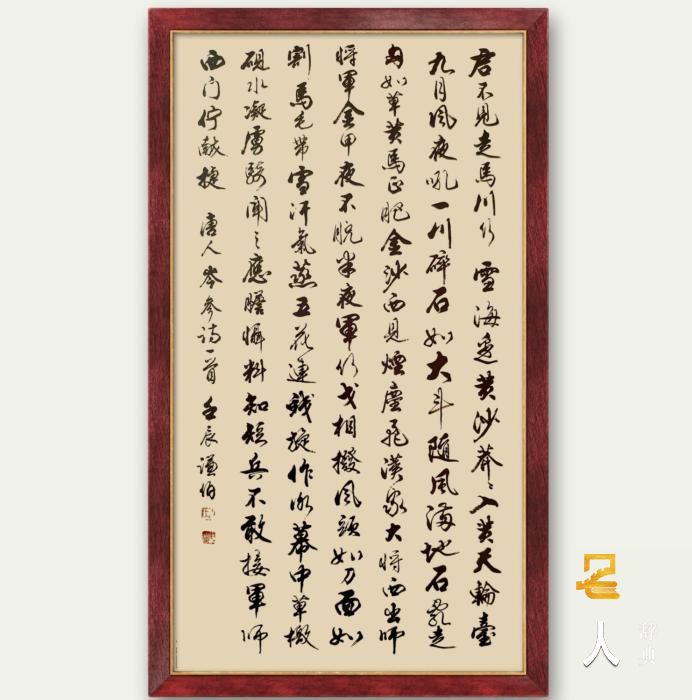 君不見走馬川行雪海邊黄沙莽〻入黄天輪臺
九月風夜吼一川碎石如大斗隨風滿地石亂走
匈奴草黄馬正肥金沙西見煙塵飛漢家大將西出師
將軍金甲夜不脱半夜軍行戈相撥風頭如刀面如
割馬毛帶雪汗氣蒸五花連錢旋作冰幕中草檄
硯水凝虜騎聞之應膽懾料知短兵不敢接軍師
西門佇獻捷 唐人岑參詩一首 壬辰謙伯
名
人
辞典